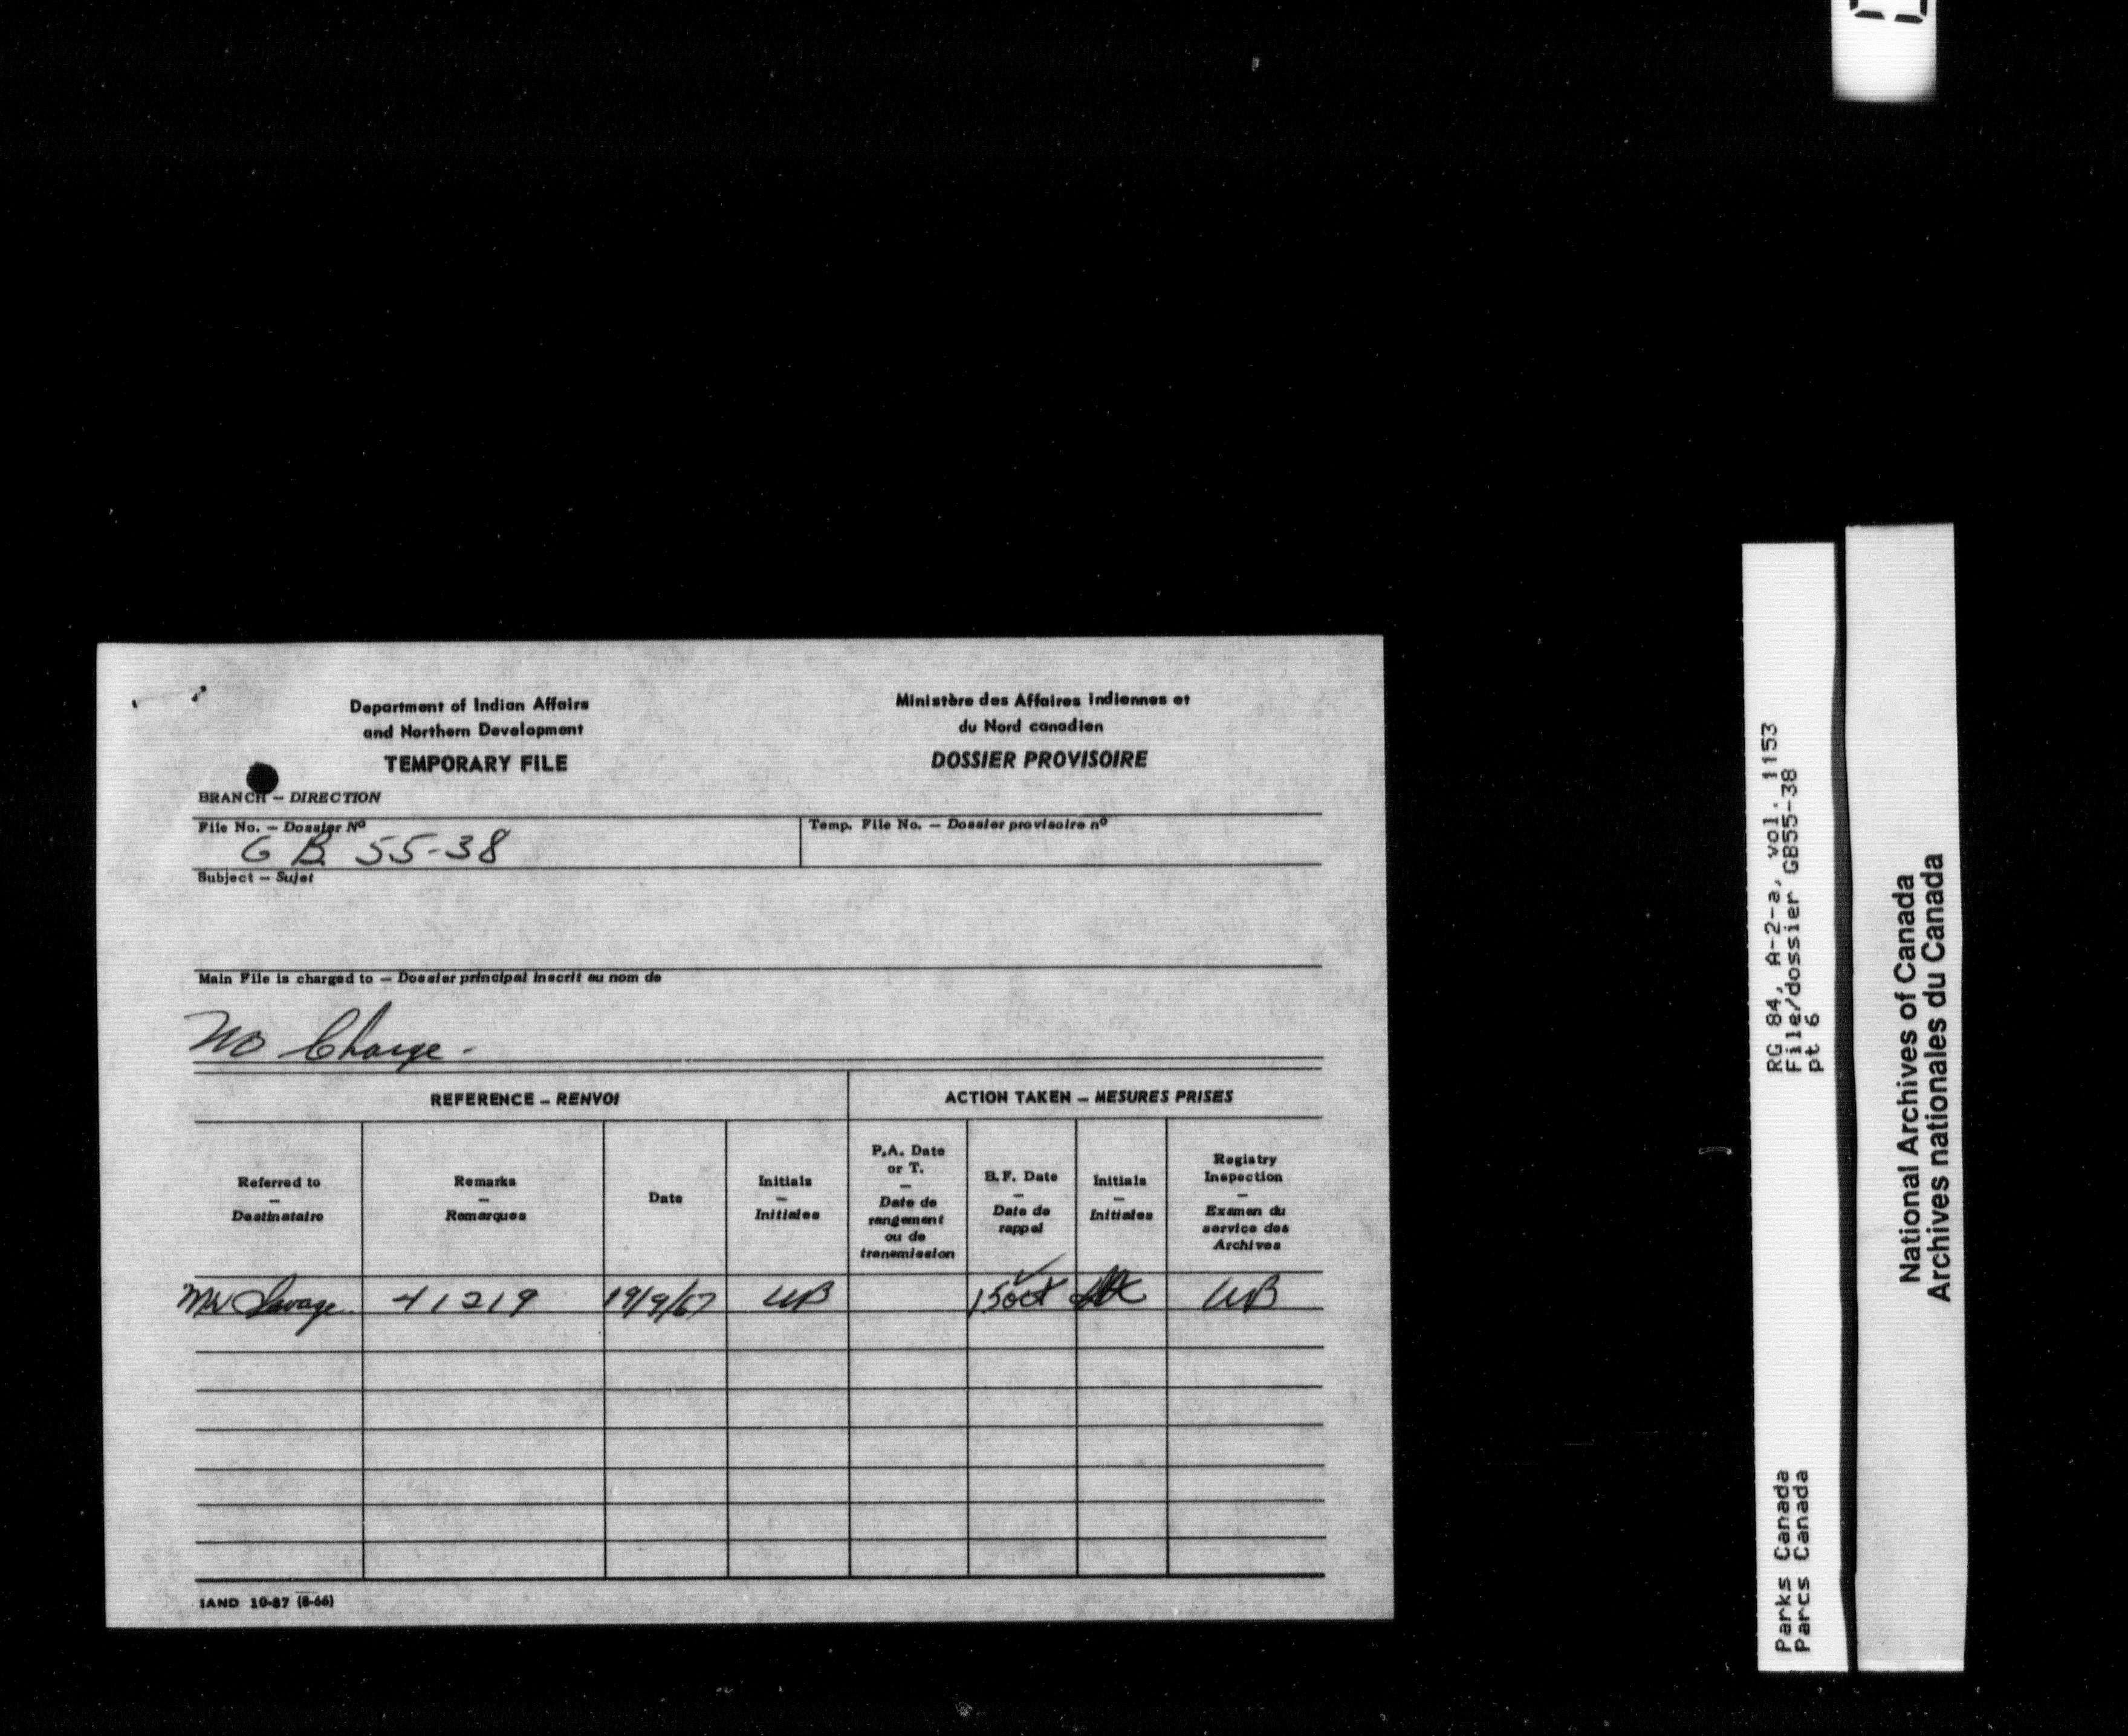 Department of Indian Affairs
and Northern Development
TEMPORARY FILE
Ministère des Affaires indiennes et
du Nord canadien
DOSSIER PROVISOIRE
BRANCH – DIRECTION
File No. – Dossier Nº
G B 55-38
Temp. File No. – Dossier provisoire nº
Subject – Sujet
Main File is charged to – Dossier principal inscrit au nom de
No Charge.
REFERENCE – RENVOI
ACTION TAKEN – MESURES PRISES
Referred to
–
Destinataire
Remarks
–
Remarques
Date
Initials
–
Initiales
P.A. Date
or T.
–
Date de
rangement
ou de
transmission
B.F. Date
–
Date de
rappel
Initials
–
Initiales
Registry
Inspection
–
Examen du
service des
Archives
Mr Savage 41219 19/9/67 WB 15 oct WB
IAND 10-87 (8-66)
RG 84, A-2-a, vol. 1153
File/dossier GB55-38
pt 6
Parks Canada
Parcs Canada
National Archives of Canada
Archives nationales du Canada